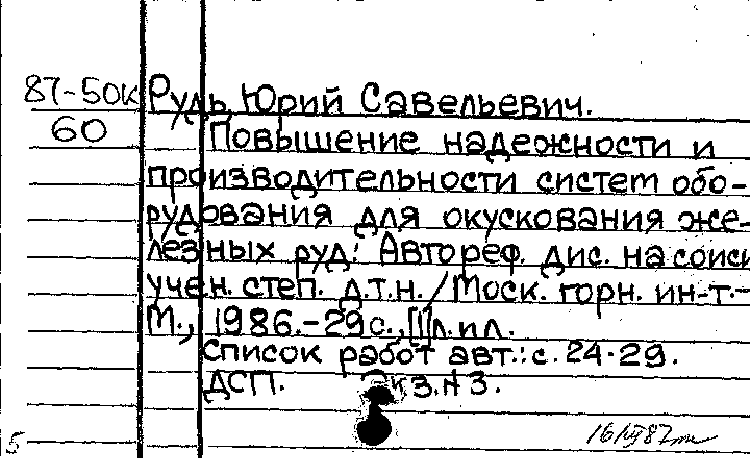 87-50к Рудь Юрий Савельевич.
60 Повышение надежности и
производительности систем обо-
рудования для окускования же-
лезных руд: Автореф. дис. на соиск
учен. степ. д.т.н./Моск. горн. ин-т.-
М., 1986.-29с.,[1]л.ил.
Список работ авт.: с. 24-29.
ДСП. Экз.№3.
5